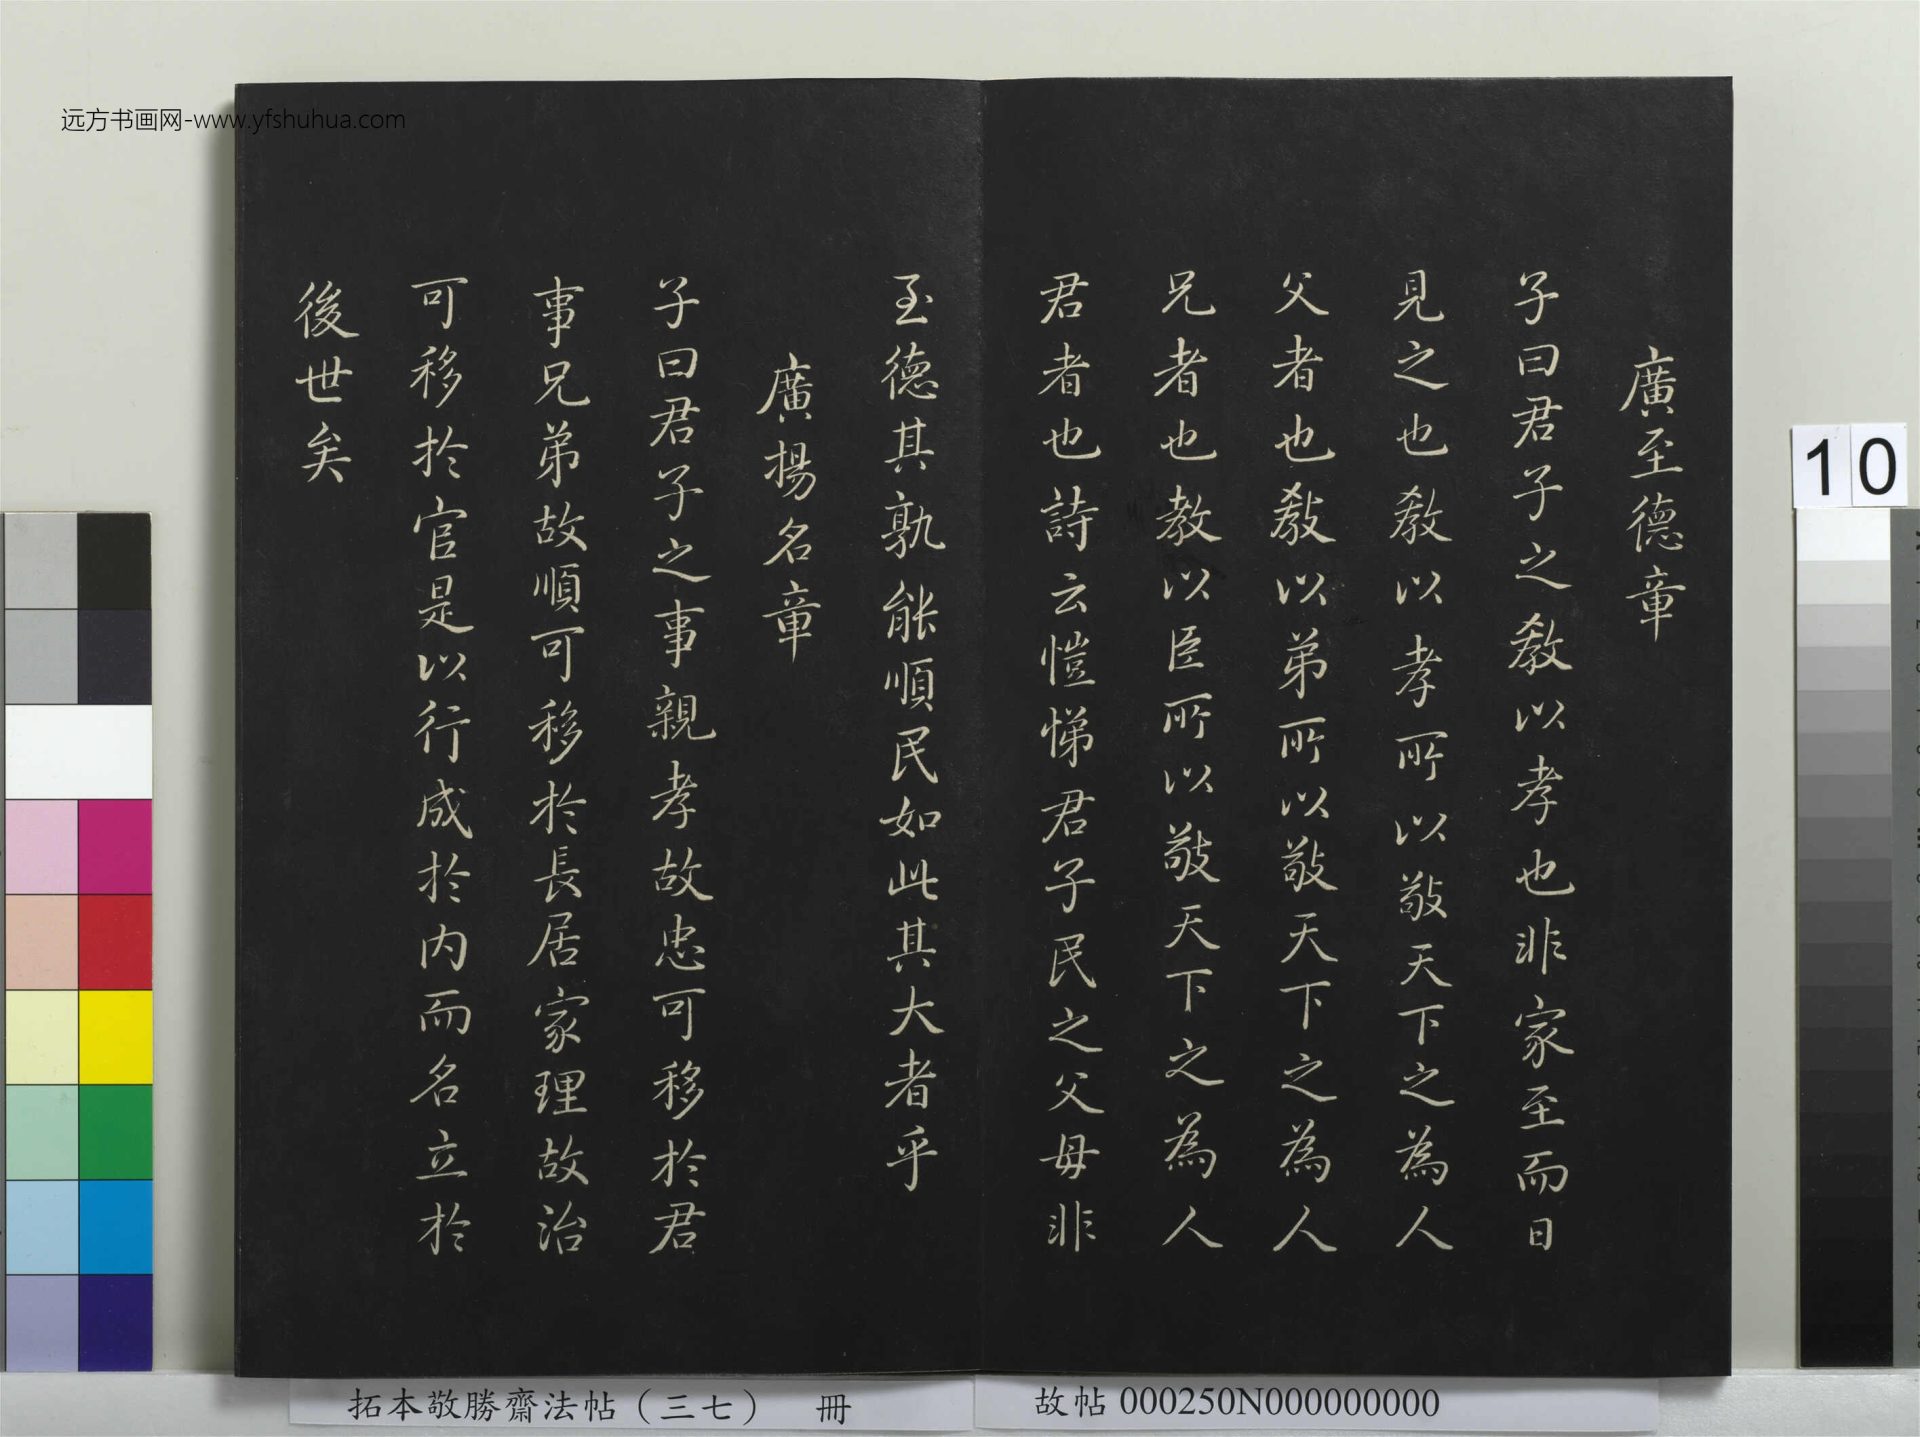 廣至德章
子曰君子之教以孝也非家至而日
見之也教以孝所以敬天下之為人
父者也教以弟所以敬天下之為人
兄者也教以臣所以敬天下之為人
君者也詩云愷悌君子民之父母非
至德其孰能順民如此其大者乎
廣揚名章
子曰君子之事親孝故忠可移於君
事兄弟故順可移於長居家理故治
可移於官是以行成於内而名立於
後世矣
远方书画网-www.yfshuhua.com
10
拓本敬勝齋法帖（三七） 冊
故帖 000250N000000000